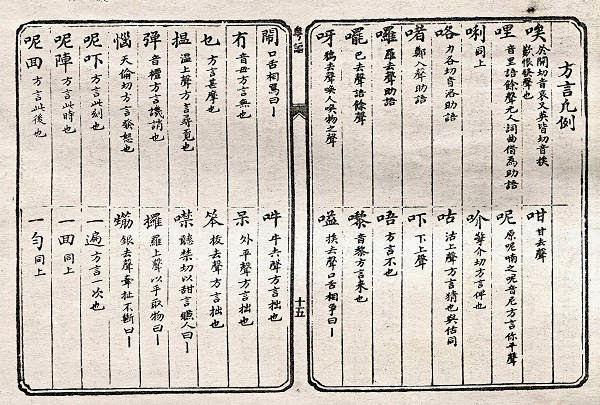 方言凡例
唉 於開切音哀又英皆切音挨歎恨發聲也
哩 音里語餘聲元人詞曲借為助語
唎 同上
咯 力各切音洛助語
啫 鄭入聲助語
囉 羅去聲助語
罷 巴去聲語餘聲
呀 鴉去聲喚人喚物之聲
咁 甘去聲
呢 原呢喃之呢音尼方言你平聲
吤 擎介切方言件也
咕 沽上聲方言猜也與估同
吓 下上聲
唔 方言不也
嚟 音黎方言來也
嗌 挨去聲口舌相爭曰丨
粵謳
十五
鬧 口舌相罵曰丨
冇 音毋方言無也
乜 方言甚麼也
揾 溫上聲方言尋覓也
彈 音檀方言譏誚也
惱 天倫切方言發怒也
呢吓 方言此刻也
呢陣 方言此時也
呢囬 方言此後也
吽 牛去聲方言拙也
呆 外平聲方言拙也
笨 板去聲方言拙也
噤 聽禁切以甜言賺人曰丨
攞 羅上聲以手取物曰丨
銀去聲牽扯不斷曰丨
一遍 方言一次也
一囬 同上
一勻 同上